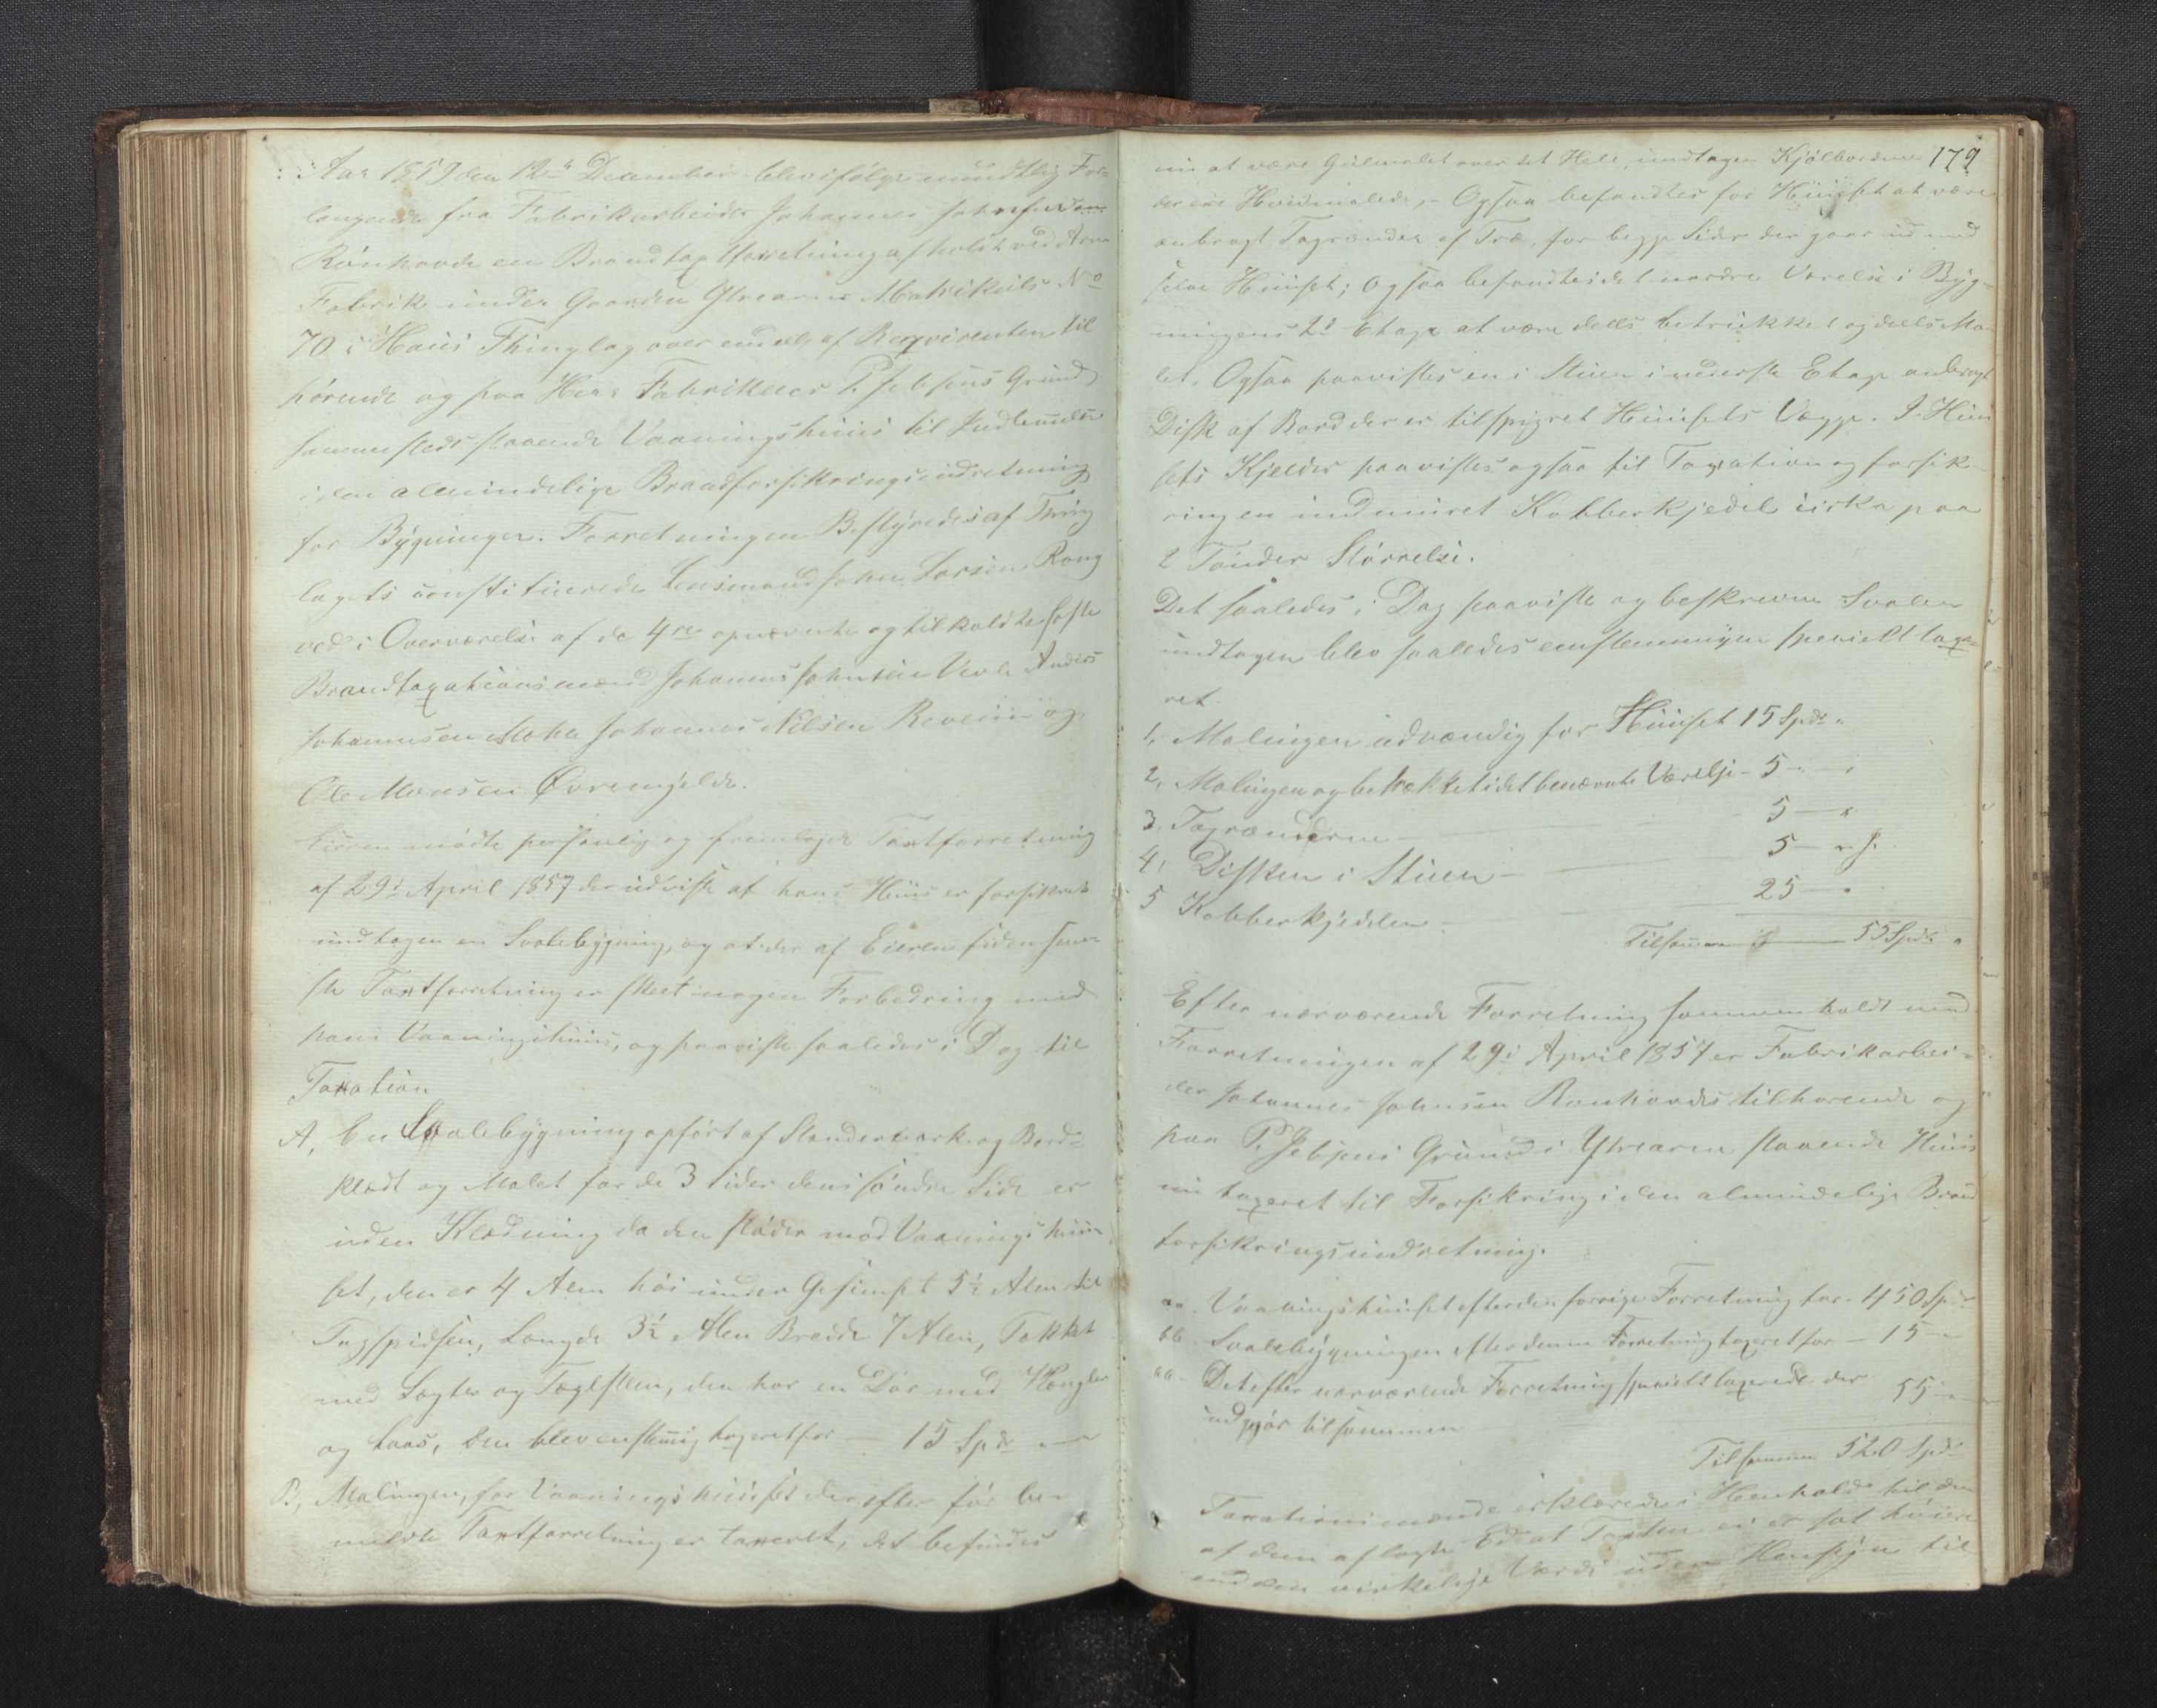 Aar 1859 den 12te December blev ifølge mundtlig For-
langende fra Fabrikarbeider Johannes Johnsen
Rönhovde en Brandtaxtforretning afholdt ved Arne
Fabrik under Gaarden Ytrearne Matrikuls No
70 i Haus Thinglag over endeel af Reqvirenten til
hørende og paa Herr Fabrikeier P. Jebsens Grund
sammesteds staaende Vaaningshuus til Indlemmelse
i den almindelige Brandforsikringsindretning
for Bygninger. Forretningen Bestyredes af Thing
lagets constituerede Lensmand John Larsen Rong
ved i Overværelse af de 4re opnævnte og tilkaldte faste
Brandtaxationsmænd Johannes Johnsen Anders
Johannesen Johannes Nilsen Reveim og
Ole Monsen Øvremjelde.
Eieren mødte personlig og fremlagde Taxtforretning
af 29de April 1857 der udviste at hans Huus er forsikret
undtagen en Svalebygning, og at der af Eieren siden sene-
ste Taxtforretning er skeet nogen Forbedring med
hans Vaaningshuus, og paaviste saaledes i Dag til
Taxation
A, En Svalebygning opført af Standerverk og Bord-
klædt og Malet for de 3 sider dens søndre Side er
uden Klædning da den støder mod Vaaningshuu-
set, den er 4 Alen høi under Gesimset 5½ Alen til
Tagspidsen, Længde 3½ Alen Bredde 7 Alen, Tækket
med Lægter og Taglsteen, den har en Dør med Hængsler
og Laas, den blev enstemig taxeret for — 15 Spd —
B, Malingen, for Vaaningshuuset der efter før be-
meldte Taxtforretning er taxeret, det befindes
179
nu at være Guulmalet over det Hele, undtagen Kjølbordene
der ere Hvidmalede, - Ogsaa befandtes for Huuset at være
anbragt Tagrænder af Træ, for begge Sider der gaar ud med
selve Huuset; ogsaa befandtes det nordre Værelse i Byg-
ningens 2d Etage at være deels betrukket og deels Ma-
let, Ogsaa paavistes en i Stuen i nederste Etage anbragt
Disk af Bord der er tilspigret Huusets Vægge. I Huu
sets Kjelder paavistes ogsaa til Taxation og forsik-
ring en indmuret Kobberkjedel cirka paa
2 Tønder Størrelse.
Det saaledes i Dag paaviste og beskrevne Svalen
undtagen blev saaledes eenstemmigen specielt taxe-
ret
1, Malingen udvændig for Huuset 15 Spd "
2, Malingen og betrækket i det benævnte Værelse - 5 - "
3, Tagrænderne — 5 — "
4, Disken i Stuen — 5 — "
5 Kobberkjedelen — 25 — "
Tilsammen — 55 Spd "
Efter nærværende Forretning sammenholdt med
Forretningen af 29de April 1857 er Fabrikarbei-
der Johannes Johnsen Rönhovdes tilhørende og
paa P. Jebsens Grund i Ytrearne staaende Huus
nu taxeret til Forsikring i den almindelige Brand
forsikringsindretning.
aa - Vaaningshuuset efter den forrige Forretning for - 450 Sp
bb - Svalebygningen efter denne Forretning taxeret for - 15 -
cc - Det efter nærværende Forretning specielt taxerede der
udgjør tilsammen — 55 —
Tilsammen 520 Spd
Taxationsmænde erklærede i Henhold til den
af dem aflagte Ed at Taxten ei er sat høiere
end den virkelige Værdi uden Hensyn til